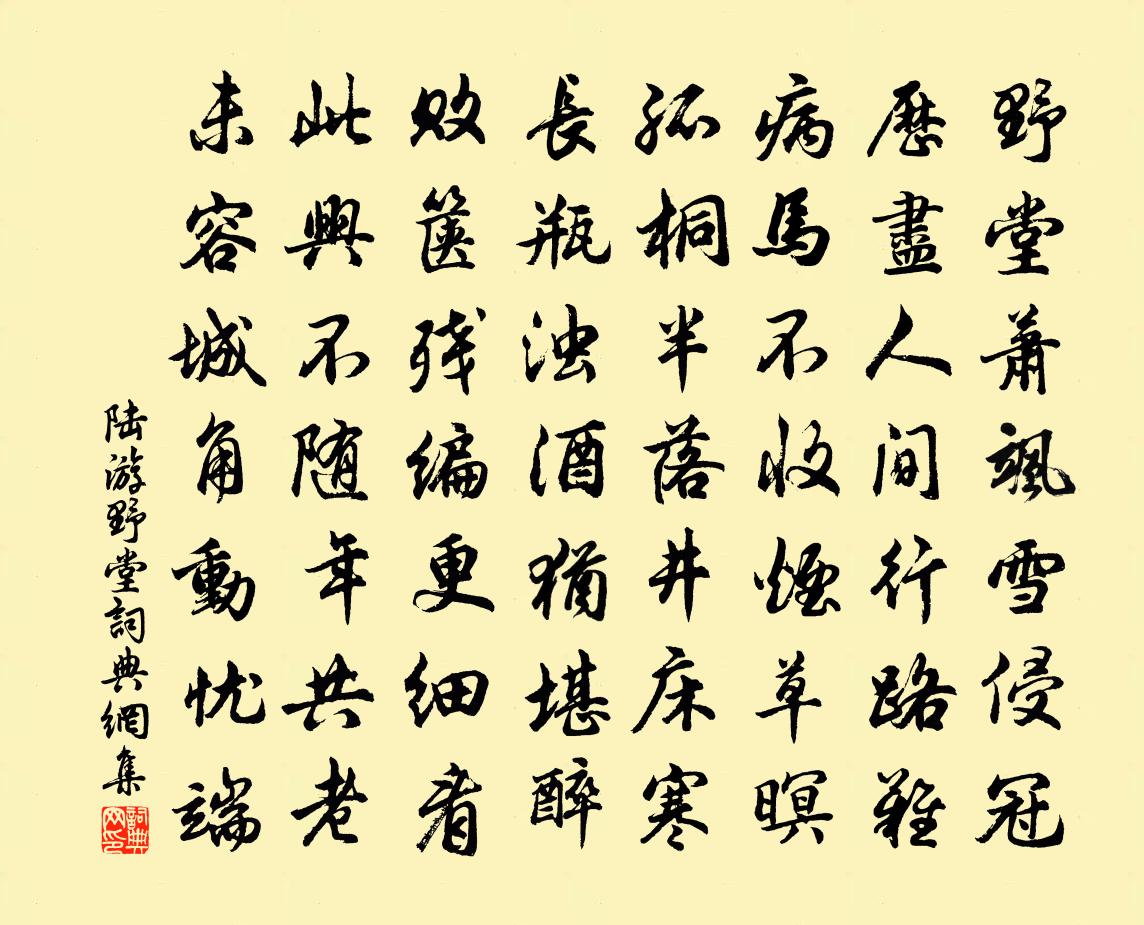 野堂萧飒雪侵冠
歷盡人间行路難
病馬不收煙草暝
孤桐半落井床寒
長瓶浊酒猶堪醉
败箧残编更细看
此興不随年共老
未容城角動忧端
陆游野堂詞典網集
詞典
网印